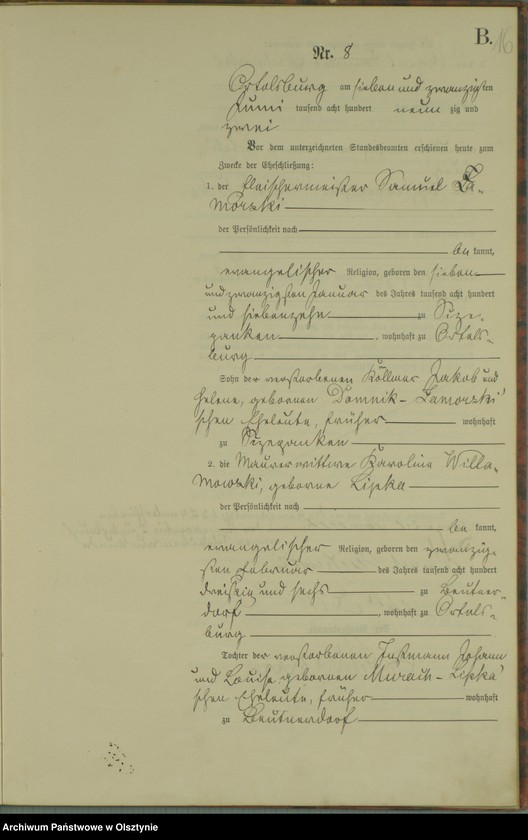 B.
16
Nr. 8
Ortelsburg am sieben und zwanzigsten
Juni tausend acht hundert neun zig und
zwei
Vor dem unterzeichneten Standesbeamten erschienen heute zum
Zwecke der Eheschließung:
1. der Fleischermeister Samuel
der Persönlichkeit nach
be kannt,
evangelischer Religion, geboren den sieben
und zwanzigsten Januar des Jahres tausend acht hundert
und siebenzehn zu
, wohnhaft zu Ortels-
burg
Sohn der verstorbenen Köllmer Jakob und
Helene, geborenen Domnik-
schen Eheleute, früher wohnhaft
zu
2. die Maurerwittwe Karoline Willa-
mowski, geborne Lipka
der Persönlichkeit nach
be kannt,
evangelischer Religion, geboren den zwanzig-
sten Februar des Jahres tausend acht hundert
dreißig und sechs zu Beutner-
dorf , wohnhaft zu Ortels-
burg
Tochter der verstorbenen Instmann Johann
und Louise, geborenen Murach-Lipka'
schen Eheleute, früher wohnhaft
zu Beutnerdorf
Archiwum Państwowe w Olsztynie